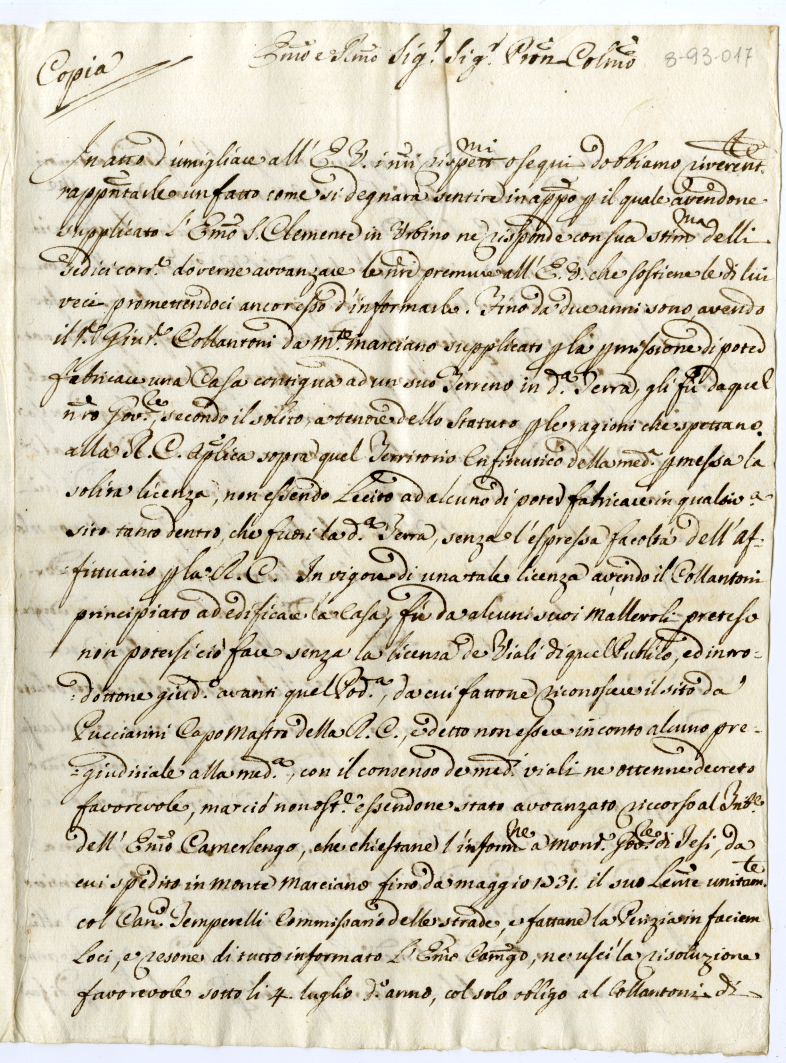 Copia
Emo e Rmo Sig.r Sig.r Pron Colmo
8-93-017
In atto d'umigliare all'E. V. i nri rispettmi osequi dobbiamo riverente
rappntarle un fatto come si degnarà sentire in appo p il quale avendone
supplicato l'Emo S. Clemente in Urbino ne risponde con sua stimma delli
sedici corr.e doverne avvanzare le nre premure all'E. V. che sostiene le di lui
veci promettendoci ancor esso d'informarle. Fino da due anni sono, avendo
il Collantoni da m.te marciano supplicato p la pmissione di poter
fabricare una Casa contigua ad un suo Terreno in d.a Terra, gli fù da quel
nro Gov.re, secondo il solito, a tenore dello Statuto p le ragioni che spettano
alla R. C. Aplica sopra quel Territorio Enfiteutico della med.a pmessa la
solita licenza, non essendo Lecito ad alcuno di poter fabricare in qualsiva
sito tanto dentro, che fuori la d.a Terra, senza l'espressa facoltà dell'af-
-fittuario p la R. C. In vigore di una tale licenza avendo il Collantoni
principiato ad edificare la Casa, fù da alcuni suoi Mallevoli preteso
non potersi ciò fare senza la licenza de Viali di quel Publico, ed intro-
-dottone giud.o avanti quel Pod.a, da cui fattone riconoscere il sito da
Pucciarini Capo Mastro della R. C., e detto non essere in conto alcuno pre-
-giudiziale alla med.a, con il consenso de med.i viali ne ottenne decreto
favorevole, mà ciò non ost.e essendone stato avvanzato ricorso al Trible
dell'Emo Camerlengo, che chiestane l'informne a mons.r Gov.re di Jesi, da
cui spedito in monte Marciano fino da maggio 1731. il suo Lente unitamte
col Can.o Temperelli Commissario delle strade, e fattane la Perizia in faciem
Loci, e resone di tutto informato L'Emo Camgo, ne uscì la risoluzione
favorevole sotto li 4. luglio d.o anno, col solo obligo al Collantoni di